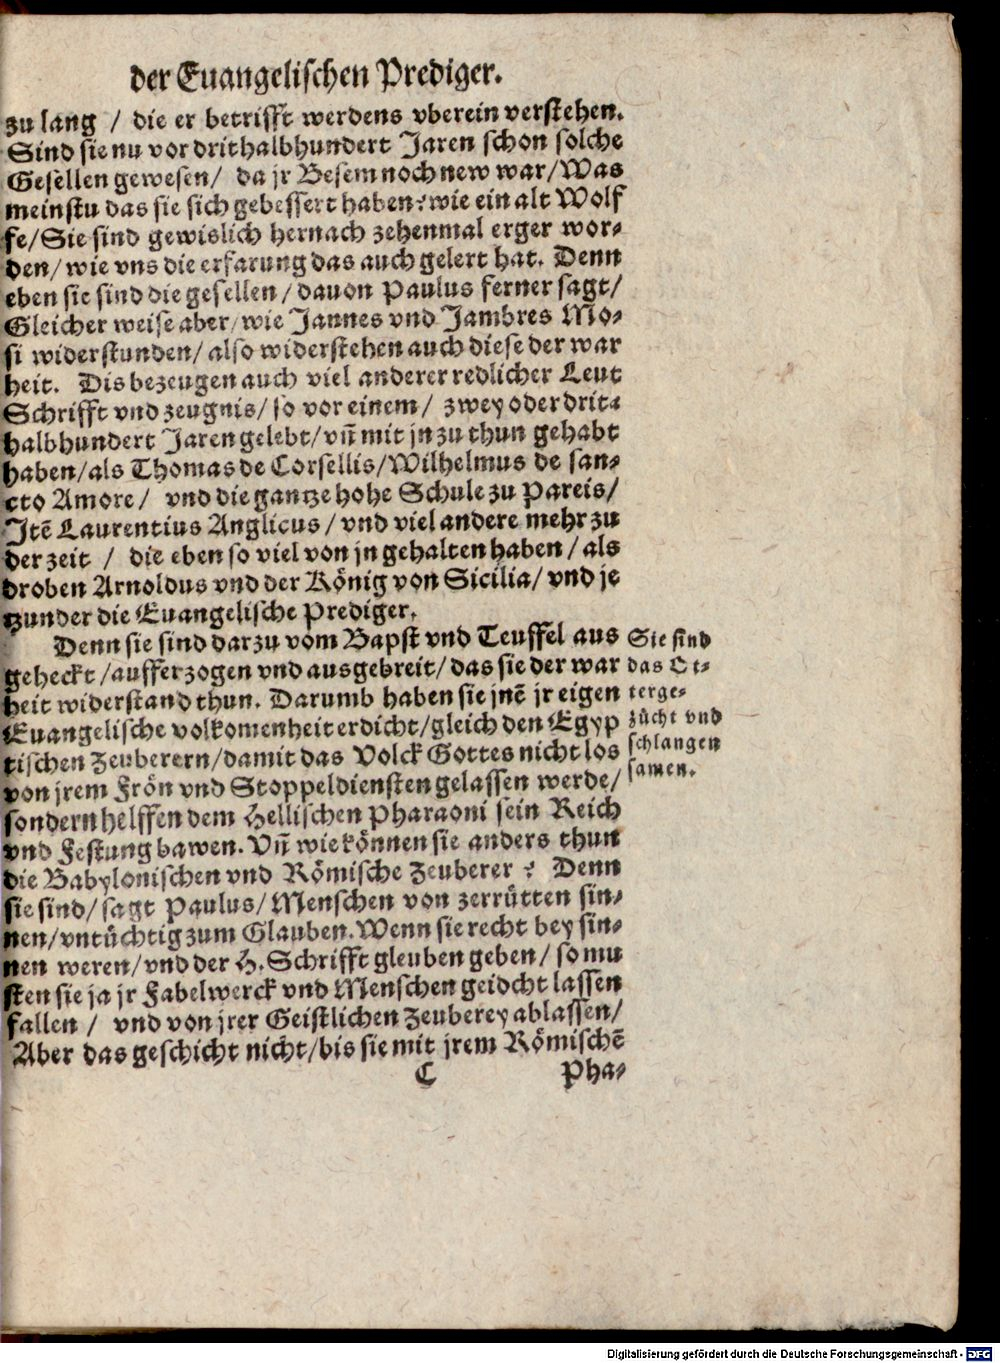 der Euangelischen Prediger.
zu lang / die er betrifft werdens vberein verstehen.
Sind sie nu vor drithalbhundert Jaren schon solche
Gesellen gewesen / da jr Besem noch new war / Was
meinstu das sie sich gebessert haben? wie ein alt Wolf
fe / Sie sind gewislich hernach zehenmal erger wor-
den / wie vns die erfarung das auch gelert hat. Denn
eben sie sind die gesellen / dauon Paulus ferner sagt /
Gleicher weise aber / wie Jannes vnd Jambres Mo-
si widerstunden / also widerstehen auch diese der war
heit. Dis bezeugen auch viel anderer redlicher Leut
Schrifft vnd zeugnis / so vor einem / zwey oder drit-
halbhundert Jaren gelebt / vn̄ mit jn zu thun gehabt
haben / als Thomas de Corsellis / Wilhelmus de san-
cto Amore / vnd die gantze hohe Schule zu Pareis /
Itē Laurentius Anglicus / vnd viel andere mehr zu
der zeit / die eben so viel von jn gehalten haben / als
droben Arnoldus vnd der König von Sicilia / vnd je
tzunder die Euangelische Prediger.
Denn sie sind darzu vom Bapst vnd Teuffel aus
geheckt / aufferzogen vnd ausgebreit / das sie der war
heit widerstand thun. Darumb haben sie jnē jr eigen
Euangelische volkomenheit erdicht / gleich den Egyp
tischen Zeuberern / damit das Volck Gottes nicht los
von jrem Frön vnd Stoppeldiensten gelassen werde /
sondern helffen dem Hellischen Pharaoni sein Reich
vnd Festung bawen. Vn̄ wie können sie anders thun
die Babylonischen vnd Römische Zeuberer ? Denn
sie sind / sagt Paulus / Menschen von zerrütten sin-
nen / vntüchtig zum Glauben. Wenn sie recht bey sin-
nen weren / vnd der H. Schrifft gleuben geben / so mu
sten sie ja jr Fabelwerck vnd Menschen geidcht lassen
fallen / vnd von jrer Geistlichen Zeuberey ablassen /
Aber das geschicht nicht / bis sie mit jrem Römischē
C Pha-
Sie sind
das Ot-
terge-
zücht vnd
schlangen
samen.
Digitalisierung gefördert durch die Deutsche Forschungsgemeinschaft - DFG